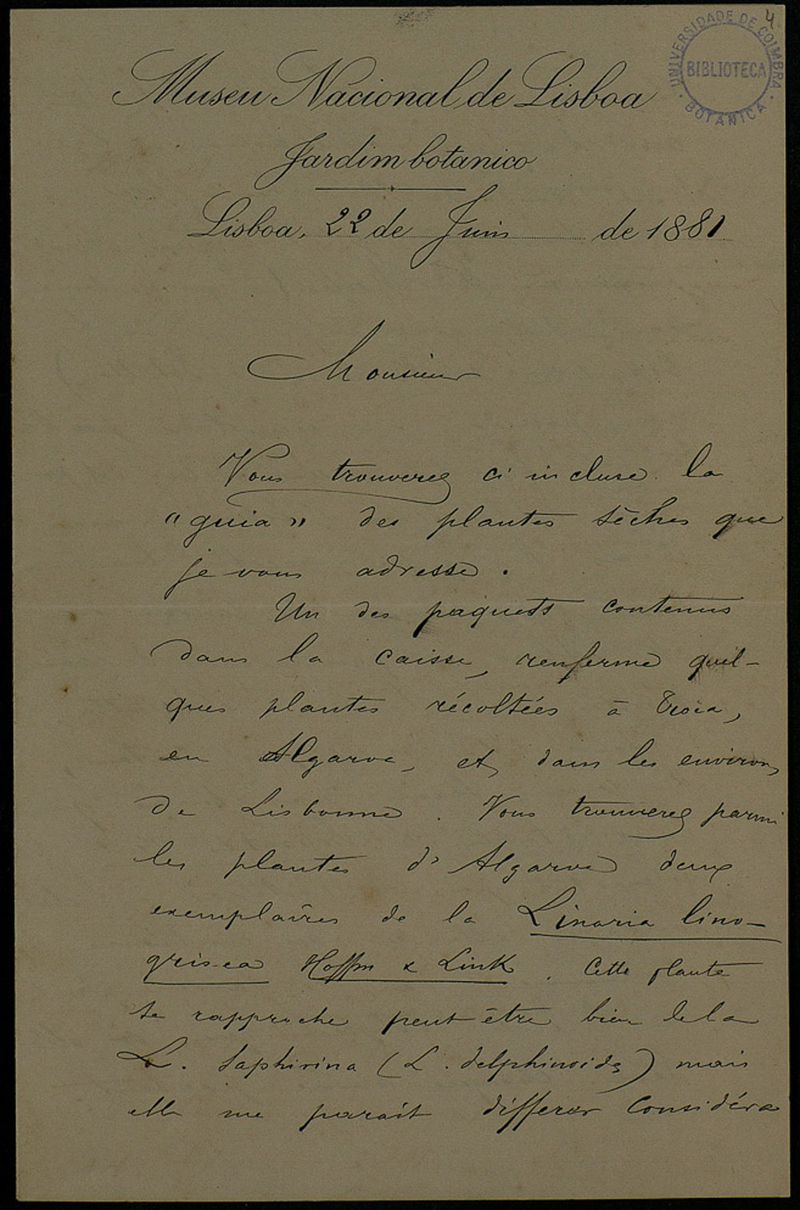 4
UNIVERSIDADE DE COIMBRA
BIBLIOTECA
BOTANICA
Museu Nacional de Lisboa
Jardim botanico
Lisboa, 22 de Juin de 1881
Monsieur
Vous trouverez ci incluse la
"guia" des plantes sèches que
je vous adresse.
Un des paquets contenus
dans la caisse, renferme quel-
ques plantes récoltées à Troia,
en Algarve, et dans les environs
de Lisbonne. Vous trouverez parmi
les plantes d'Algarve deux
exemplaires de la Linaria lino-
grisea Hoffm & Link. Cette plante
se rapproche peut être bien de la
L. saphirina (L. delphinoides) mais
elle me parait differer considéra